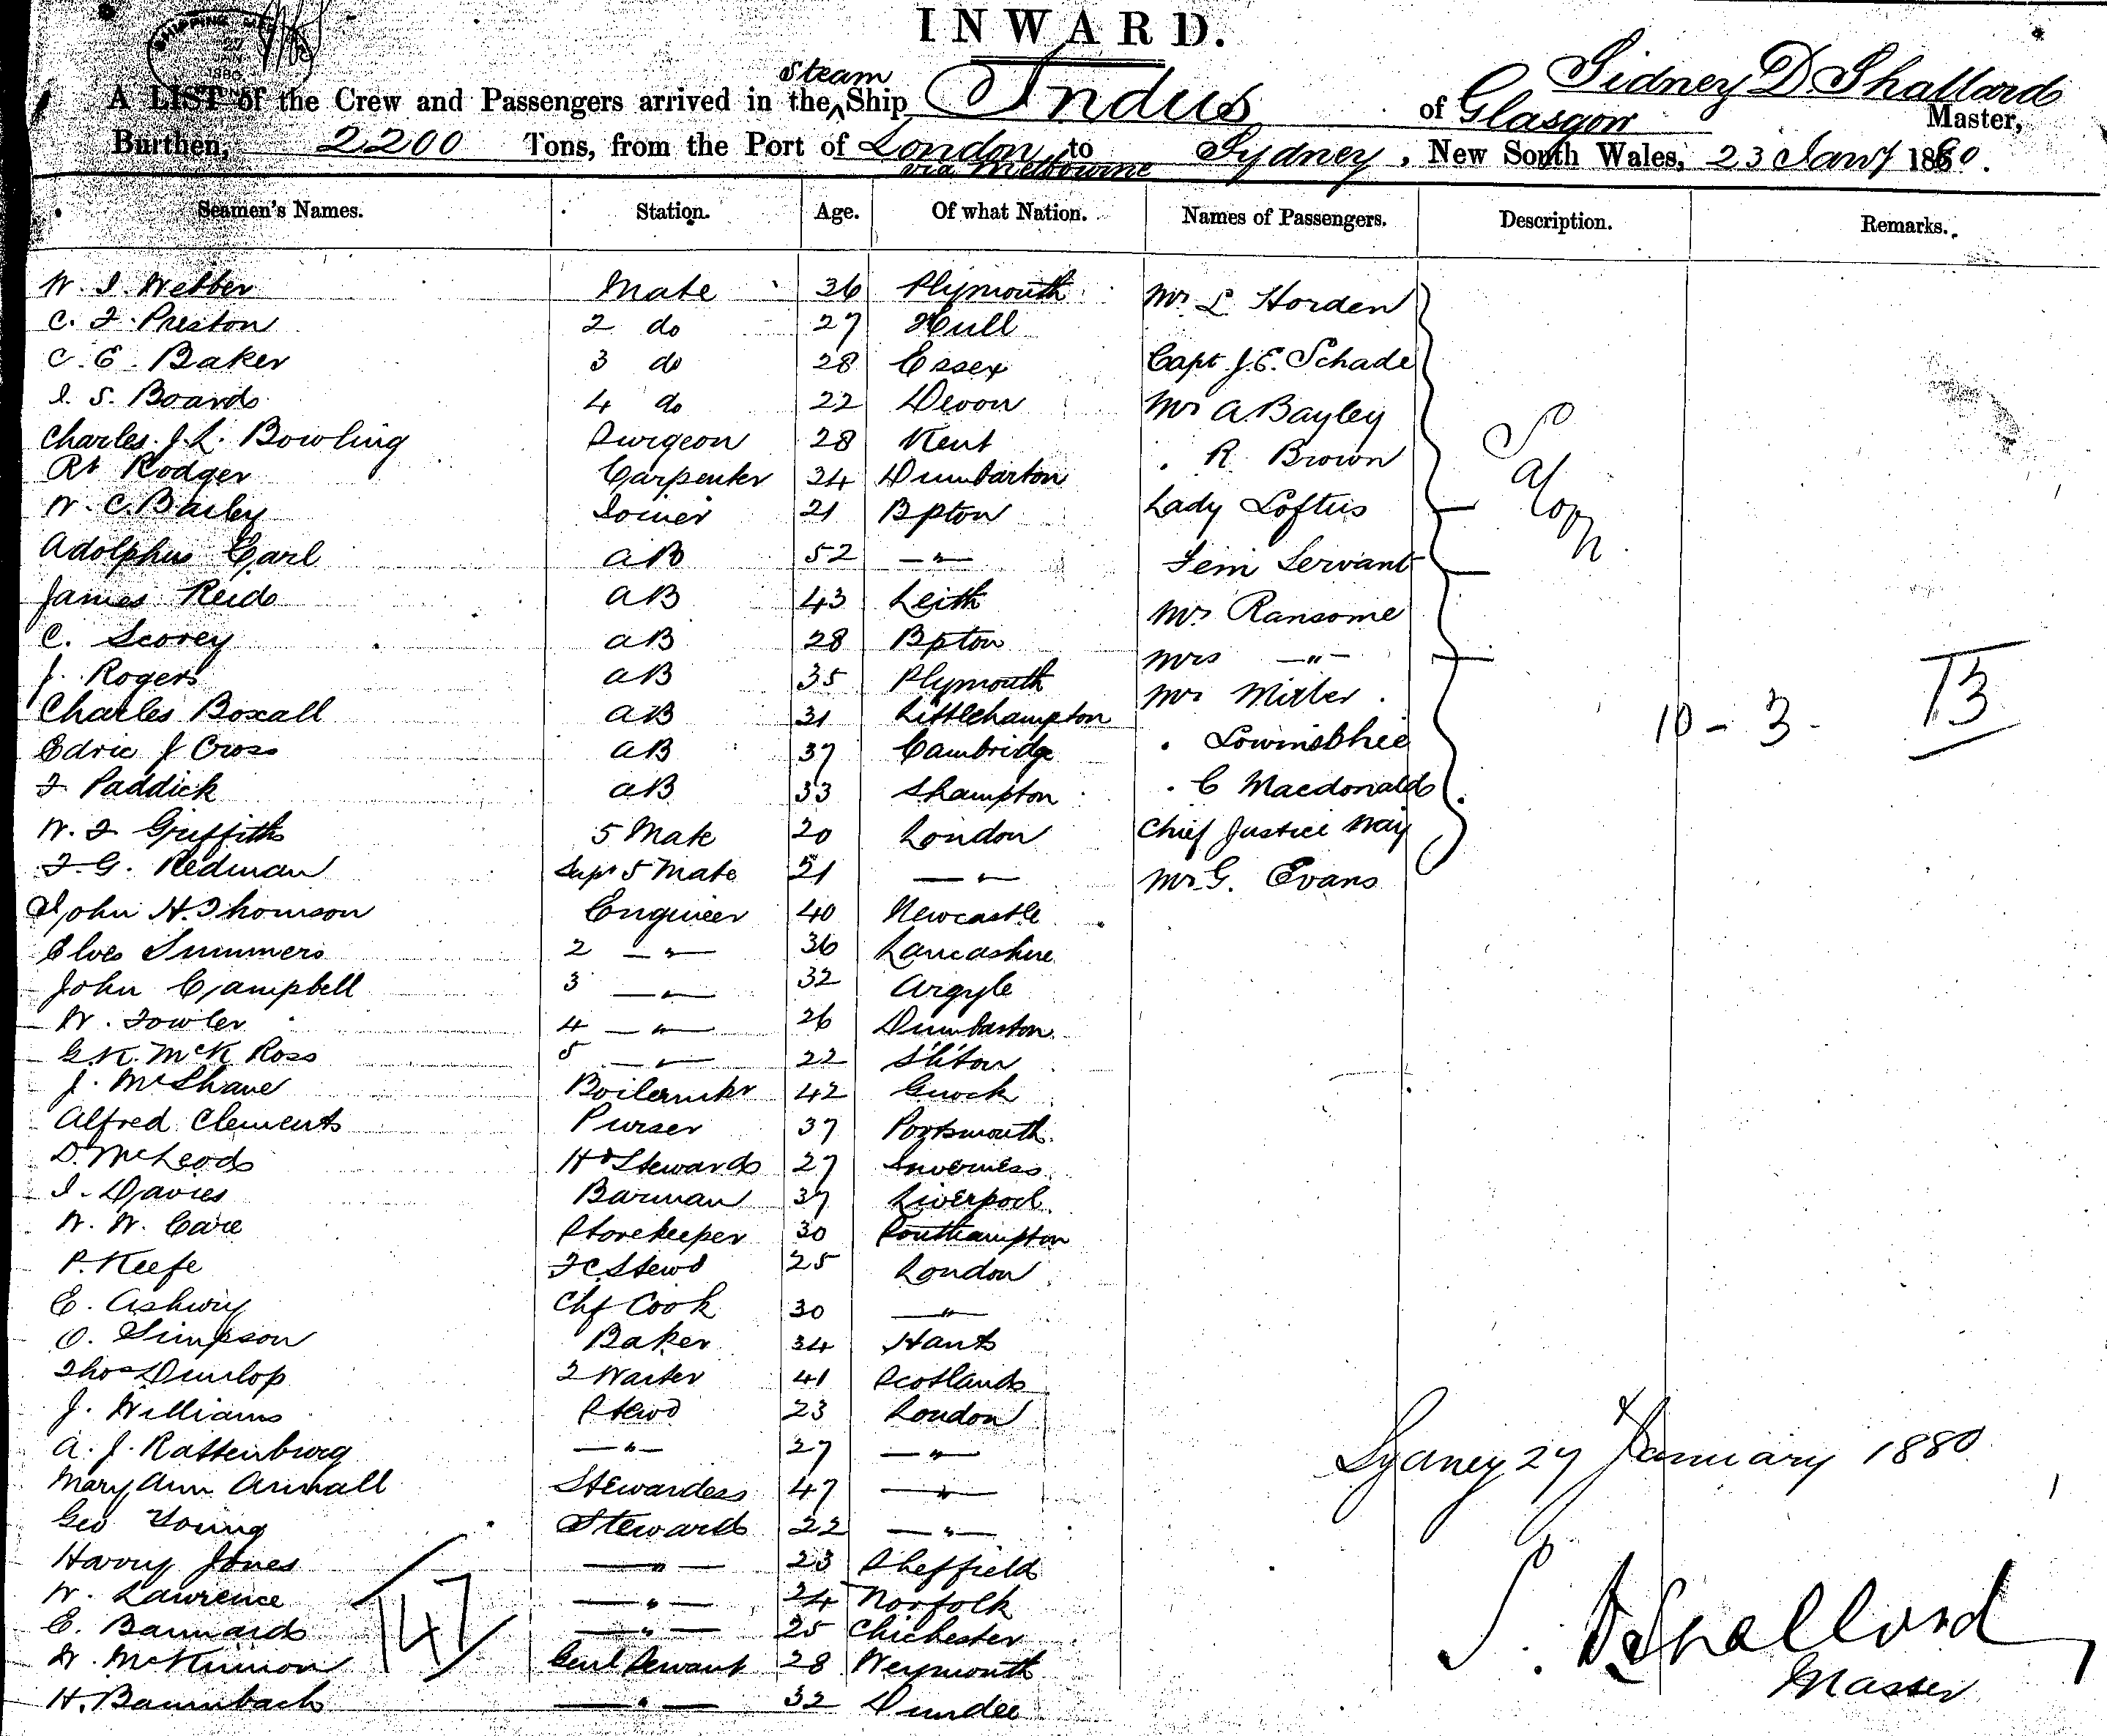 SHIPPING
27
JAN
1880
INWARD.
Sidney D Shallard
A LIST of the Crew and Passengers arrived in the Steam Ship Indus of Glasgow Master,
Burthen, 2200 Tons, from the Port of London via Melbourne to Sydney, New South Wales, 23 Jany 1880.
Seamen's Names. Station. Age. Of what Nation. Names of Passengers. Description. Remarks.
W. I. Webber Mate 36 Plymouth Mr L Horden
C. F. Preston 2 do 27 Hull
C. E. Baker 3 do 28 Essex Capt J.E. Schade
I. S. Board 4 do 22 Devon Mr A. Bayley
Charles. J. L. Bowling Surgeon 28 Kent " R Brown
Rt Rodger Carpenter 34 Dumbarton Saloon
W. C. Bailey Joiner 21 Bpton Lady Loftus
Adolphus Carl AB 52 —"— Fem Servant
James Reid AB 43 Leith Mr Ransome
C. Scorey AB 28 Bpton Mrs —"—
J. Rogers AB 35 Plymouth Mr
Charles Boxall AB 31 Littlehampton 10 - 3 - 13
Edric J Cross AB 37 Cambridge
F. Paddick AB 33 Shampton " C Macdonald
W. F. Griffiths 5 Mate 20 London Chief Justice Way
F. G. Redman Supr 5 Mate 21 —"— Mr G. Evans
John H. Thomson Engineer 40 Newcastle
Summers 2 —"— 36 Lancashire
John Campbell 3 —"— 32 Argyle
W. Fowler 4 —"— 26 Dumbarton
G. K. McK Ross 5 —"— 22
J. McShane Boilermkr 42
Alfred Clements Purser 37 Portsmouth
D. McLeod Hd Steward 27 Inverness
I. Davies Barman 37 Liverpool
W. W. Care Storekeeper 30 Southampton
P. Keefe FC. Stewd 25 London
E. Chf Cook 30 —"—
O. Simpson Baker 34 Hants
Thos Dunlop 2 Waiter 41 Scotland
J. Williams Stewd 23 London
A. J. Rattenburg —"— 27 —"— Sydney 27 January 1880
Mary Ann Stewardess 47 —"—
Geo Young Steward 22 —"—
Harry Jones —"— 23 Sheffield
W. Lawrence —"— 24 Norfolk
147
E. Barnard —"— 25 Chichester S. D. Shallard
W. McKinnon Genl Servant 28 Weymouth Master
H. Baumbach —"— 32 Dundee